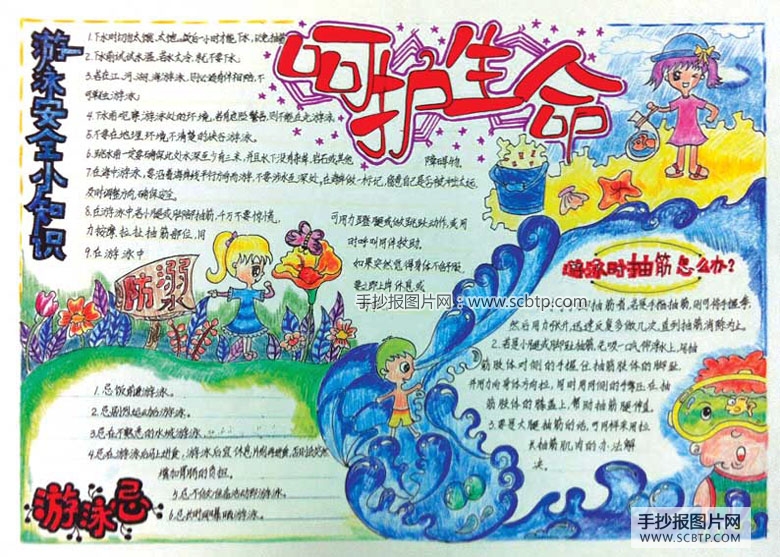 呵护生命
游泳安全小知识
1.下水时切勿太饿、太饱。饭后一小时才能下水,以免抽筋。
2.下水前试试水温,若水太冷,就不要下水。
3.若在江、河、湖、海游泳,则必须有伴相陪,不
可单独游泳。
4.下水前观察游泳处的环境,若有危险警告,则不能在此游泳。
5.不要在地理环境不清楚的峡谷游泳。
6.跳水前一定要确保此处水深至少有三米,并且水下没有杂草、岩石或其他
障碍物。
7.在海中游泳,要沿着海岸线平行方向而游,不要涉水至深处,在海岸做一标记,留意自己是否被冲出太远,
及时调整方向,确保安全。
8.在游泳中若小腿或脚部抽筋,千万不要惊慌,
可用力蹬腿或做跳跃动作,或用
力按摩、拉扯抽筋部位,同
时呼叫同伴救助。
9.在游泳中
如果突然觉得身体不舒服,
要立即上岸休息或
防溺
手抄报图片网:www.scbtp.com
游泳时抽筋怎么办?
抽筋者,若是手指抽筋,则可将手握拳,
然后用力张开,迅速反复多做几次,直到抽筋消除为止。
2.若是小腿或脚趾抽筋,先吸一口气仰浮水上,用抽
筋肢体对侧的手握住抽筋肢体的脚趾,
并用力向身体方向拉,同时用同侧的手掌压在抽
筋肢体的膝盖上,帮助抽筋腿伸直。
3.要是大腿抽筋的话,可同样采用拉
长抽筋肌肉的办法解
决。
1.忌饭前后游泳。
2.忌剧烈运动后游泳。
3.忌在不熟悉的水域游泳。
4.忌在游泳后马上进食,游泳后宜休息片刻再进食,否则会突然
增加胃肠的负担。
5.忌不做准备活动即游泳。
6.忌长时间曝晒游泳。
游泳忌
手抄报图片网
WWW.SCBTP.COM